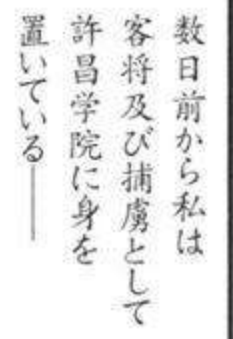 数日前から私は
客将及び捕虜として
許昌学院に身を
置いている───